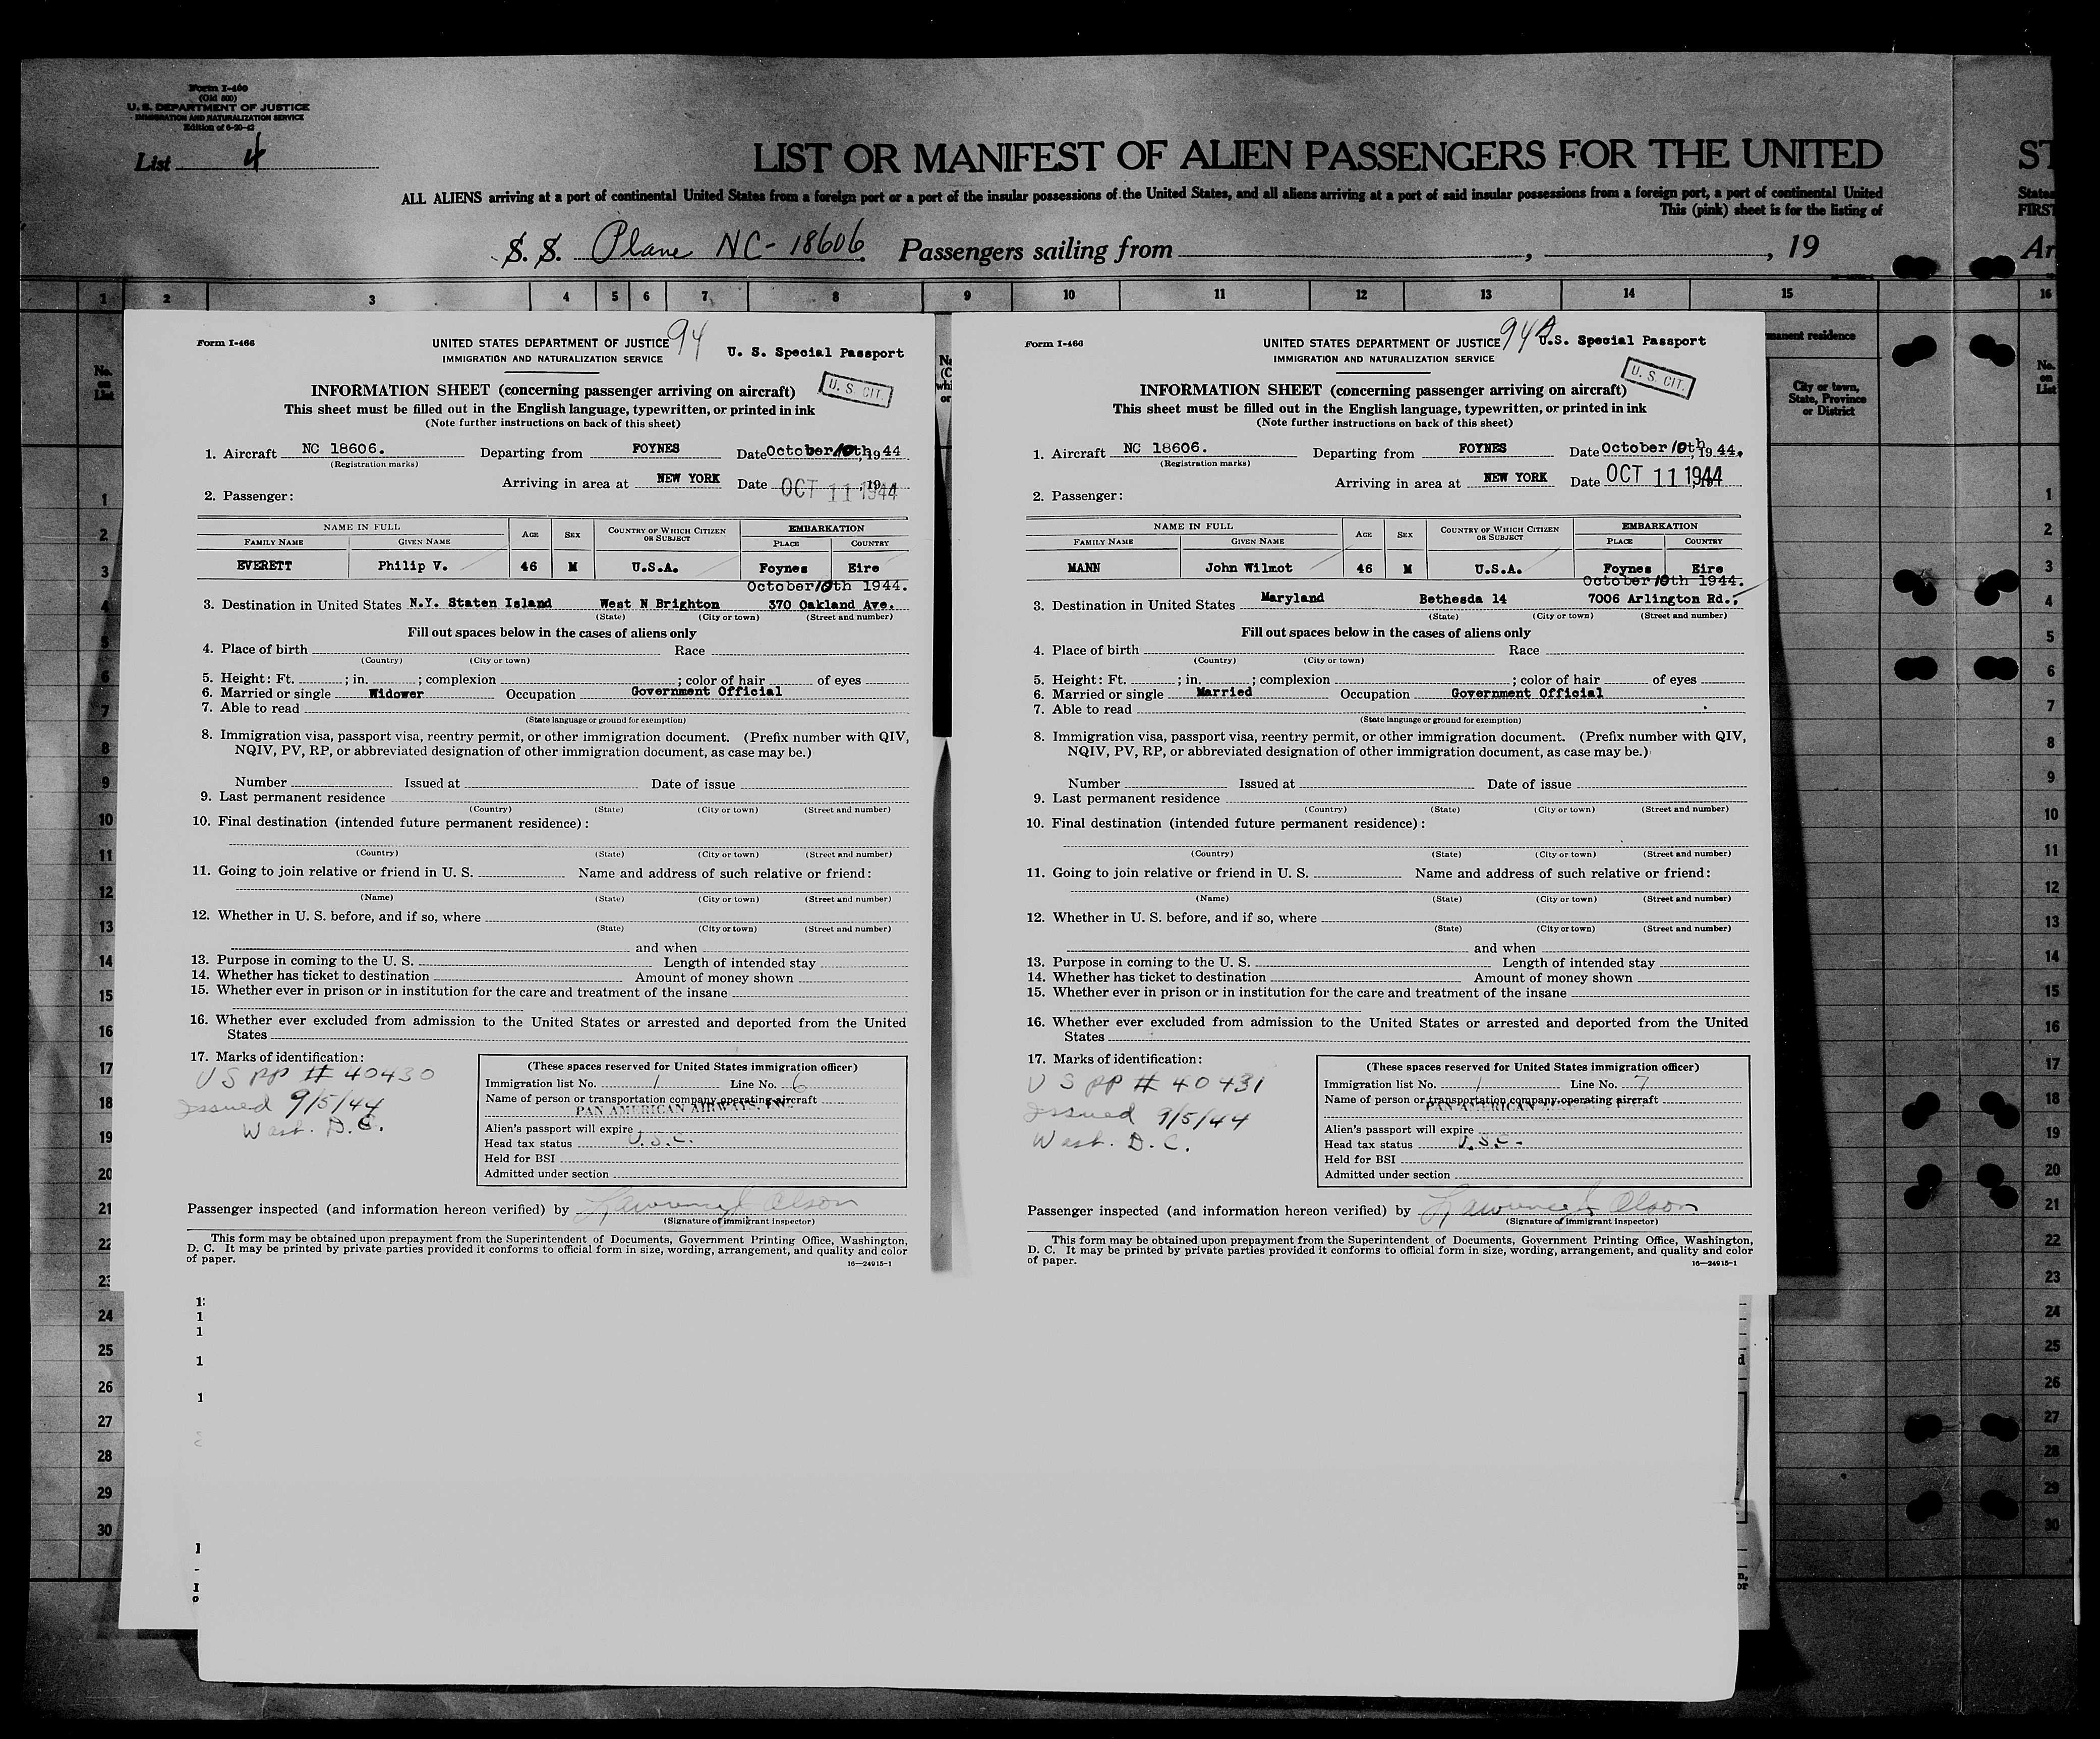 Form I-400
(Old 500)
U. S. DEPARTMENT OF JUSTICE
IMMIGRATION AND NATURALIZATION SERVICE
Edition of 6-20-42
List 4
LIST OR MANIFEST OF ALIEN PASSENGERS FOR THE UNITED
ST
ALL ALIENS arriving at a port of continental United States from a foreign port or a port of the insular possessions of the United States, and all aliens arriving at a port of said insular possessions from a foreign port, a port of continental United
States
This (pink) sheet is for the listing of
FIRST
S. S. Plane NC-18606. Passengers sailing from , , 19
Ar
1 2 3 4 5 6 7 8 9 10 11 12 13 14 15 16
manent residence
No. on List
City or town, State, Province or District
No. on List
Form I-466
UNITED STATES DEPARTMENT OF JUSTICE 94
IMMIGRATION AND NATURALIZATION SERVICE
U. S. Special Passport
INFORMATION SHEET (concerning passenger arriving on aircraft)
U. S. CIT.
This sheet must be filled out in the English language, typewritten, or printed in ink
(Note further instructions on back of this sheet)
1. Aircraft NC 18606. Departing from FOYNES Date October 10th, 1944
(Registration marks)
Arriving in area at NEW YORK Date OCT 11 1944, 19
2. Passenger:
NAME IN FULL AGE SEX COUNTRY OF WHICH CITIZEN OR SUBJECT EMBARKATION
FAMILY NAME GIVEN NAME PLACE COUNTRY
EVERETT Philip V. 46 M U.S.A. Foynes Eire
October 10th 1944.
3. Destination in United States N.Y. Staten Island West N Brighton 370 Oakland Ave.
(State) (City or town) (Street and number)
Fill out spaces below in the cases of aliens only
4. Place of birth Race
(Country) (City or town)
5. Height: Ft. ; in. ; complexion ; color of hair of eyes
6. Married or single Widower Occupation Government Official
7. Able to read
(State language or ground for exemption)
8. Immigration visa, passport visa, reentry permit, or other immigration document. (Prefix number with QIV,
NQIV, PV, RP, or abbreviated designation of other immigration document, as case may be.)
Number Issued at Date of issue
9. Last permanent residence
(Country) (State) (City or town) (Street and number)
10. Final destination (intended future permanent residence):
(Country) (State) (City or town) (Street and number)
11. Going to join relative or friend in U. S. Name and address of such relative or friend:
(Name) (State) (City or town) (Street and number)
12. Whether in U. S. before, and if so, where
(State) (City or town) (Street and number)
and when
13. Purpose in coming to the U. S. Length of intended stay
14. Whether has ticket to destination Amount of money shown
15. Whether ever in prison or in institution for the care and treatment of the insane
16. Whether ever excluded from admission to the United States or arrested and deported from the United
States
17. Marks of identification:
US PP # 40430
Issued 9/5/44
Wash. D.C.
(These spaces reserved for United States immigration officer)
Immigration list No. 1 Line No. 6
Name of person or transportation company operating aircraft
PAN AMERICAN AIRWAYS, INC.
Alien's passport will expire
Head tax status U.S.C.
Held for BSI
Admitted under section
Passenger inspected (and information hereon verified) by Lawrence J. Olson
(Signature of immigrant inspector)
This form may be obtained upon prepayment from the Superintendent of Documents, Government Printing Office, Washington,
D. C. It may be printed by private parties provided it conforms to official form in size, wording, arrangement, and quality and color
of paper.
16—24915-1
Form I-466
UNITED STATES DEPARTMENT OF JUSTICE 94A
IMMIGRATION AND NATURALIZATION SERVICE
U.S. Special Passport
INFORMATION SHEET (concerning passenger arriving on aircraft)
U. S. CIT.
This sheet must be filled out in the English language, typewritten, or printed in ink
(Note further instructions on back of this sheet)
1. Aircraft NC 18606. Departing from FOYNES Date October 10th, 1944.
(Registration marks)
Arriving in area at NEW YORK Date OCT 11 1944
2. Passenger:
NAME IN FULL AGE SEX COUNTRY OF WHICH CITIZEN OR SUBJECT EMBARKATION
FAMILY NAME GIVEN NAME PLACE COUNTRY
MANN John Wilmot 46 M U.S.A. Foynes Eire
October 10th 1944.
3. Destination in United States Maryland Bethesda 14 7006 Arlington Rd.,
(State) (City or town) (Street and number)
Fill out spaces below in the cases of aliens only
4. Place of birth Race
(Country) (City or town)
5. Height: Ft. ; in. ; complexion ; color of hair of eyes
6. Married or single Married Occupation Government Official
7. Able to read
(State language or ground for exemption)
8. Immigration visa, passport visa, reentry permit, or other immigration document. (Prefix number with QIV,
NQIV, PV, RP, or abbreviated designation of other immigration document, as case may be.)
Number Issued at Date of issue
9. Last permanent residence
(Country) (State) (City or town) (Street and number)
10. Final destination (intended future permanent residence):
(Country) (State) (City or town) (Street and number)
11. Going to join relative or friend in U. S. Name and address of such relative or friend:
(Name) (State) (City or town) (Street and number)
12. Whether in U. S. before, and if so, where
(State) (City or town) (Street and number)
and when
13. Purpose in coming to the U. S. Length of intended stay
14. Whether has ticket to destination Amount of money shown
15. Whether ever in prison or in institution for the care and treatment of the insane
16. Whether ever excluded from admission to the United States or arrested and deported from the United
States
17. Marks of identification:
US PP # 40431
Issued 9/5/44
Wash. D. C.
(These spaces reserved for United States immigration officer)
Immigration list No. 1 Line No. 7
Name of person or transportation company operating aircraft
PAN AMERICAN
Alien's passport will expire
Head tax status U.S.C.
Held for BSI
Admitted under section
Passenger inspected (and information hereon verified) by Lawrence J. Olson
(Signature of immigrant inspector)
This form may be obtained upon prepayment from the Superintendent of Documents, Government Printing Office, Washington,
D. C. It may be printed by private parties provided it conforms to official form in size, wording, arrangement, and quality and color
of paper.
16—24915-1